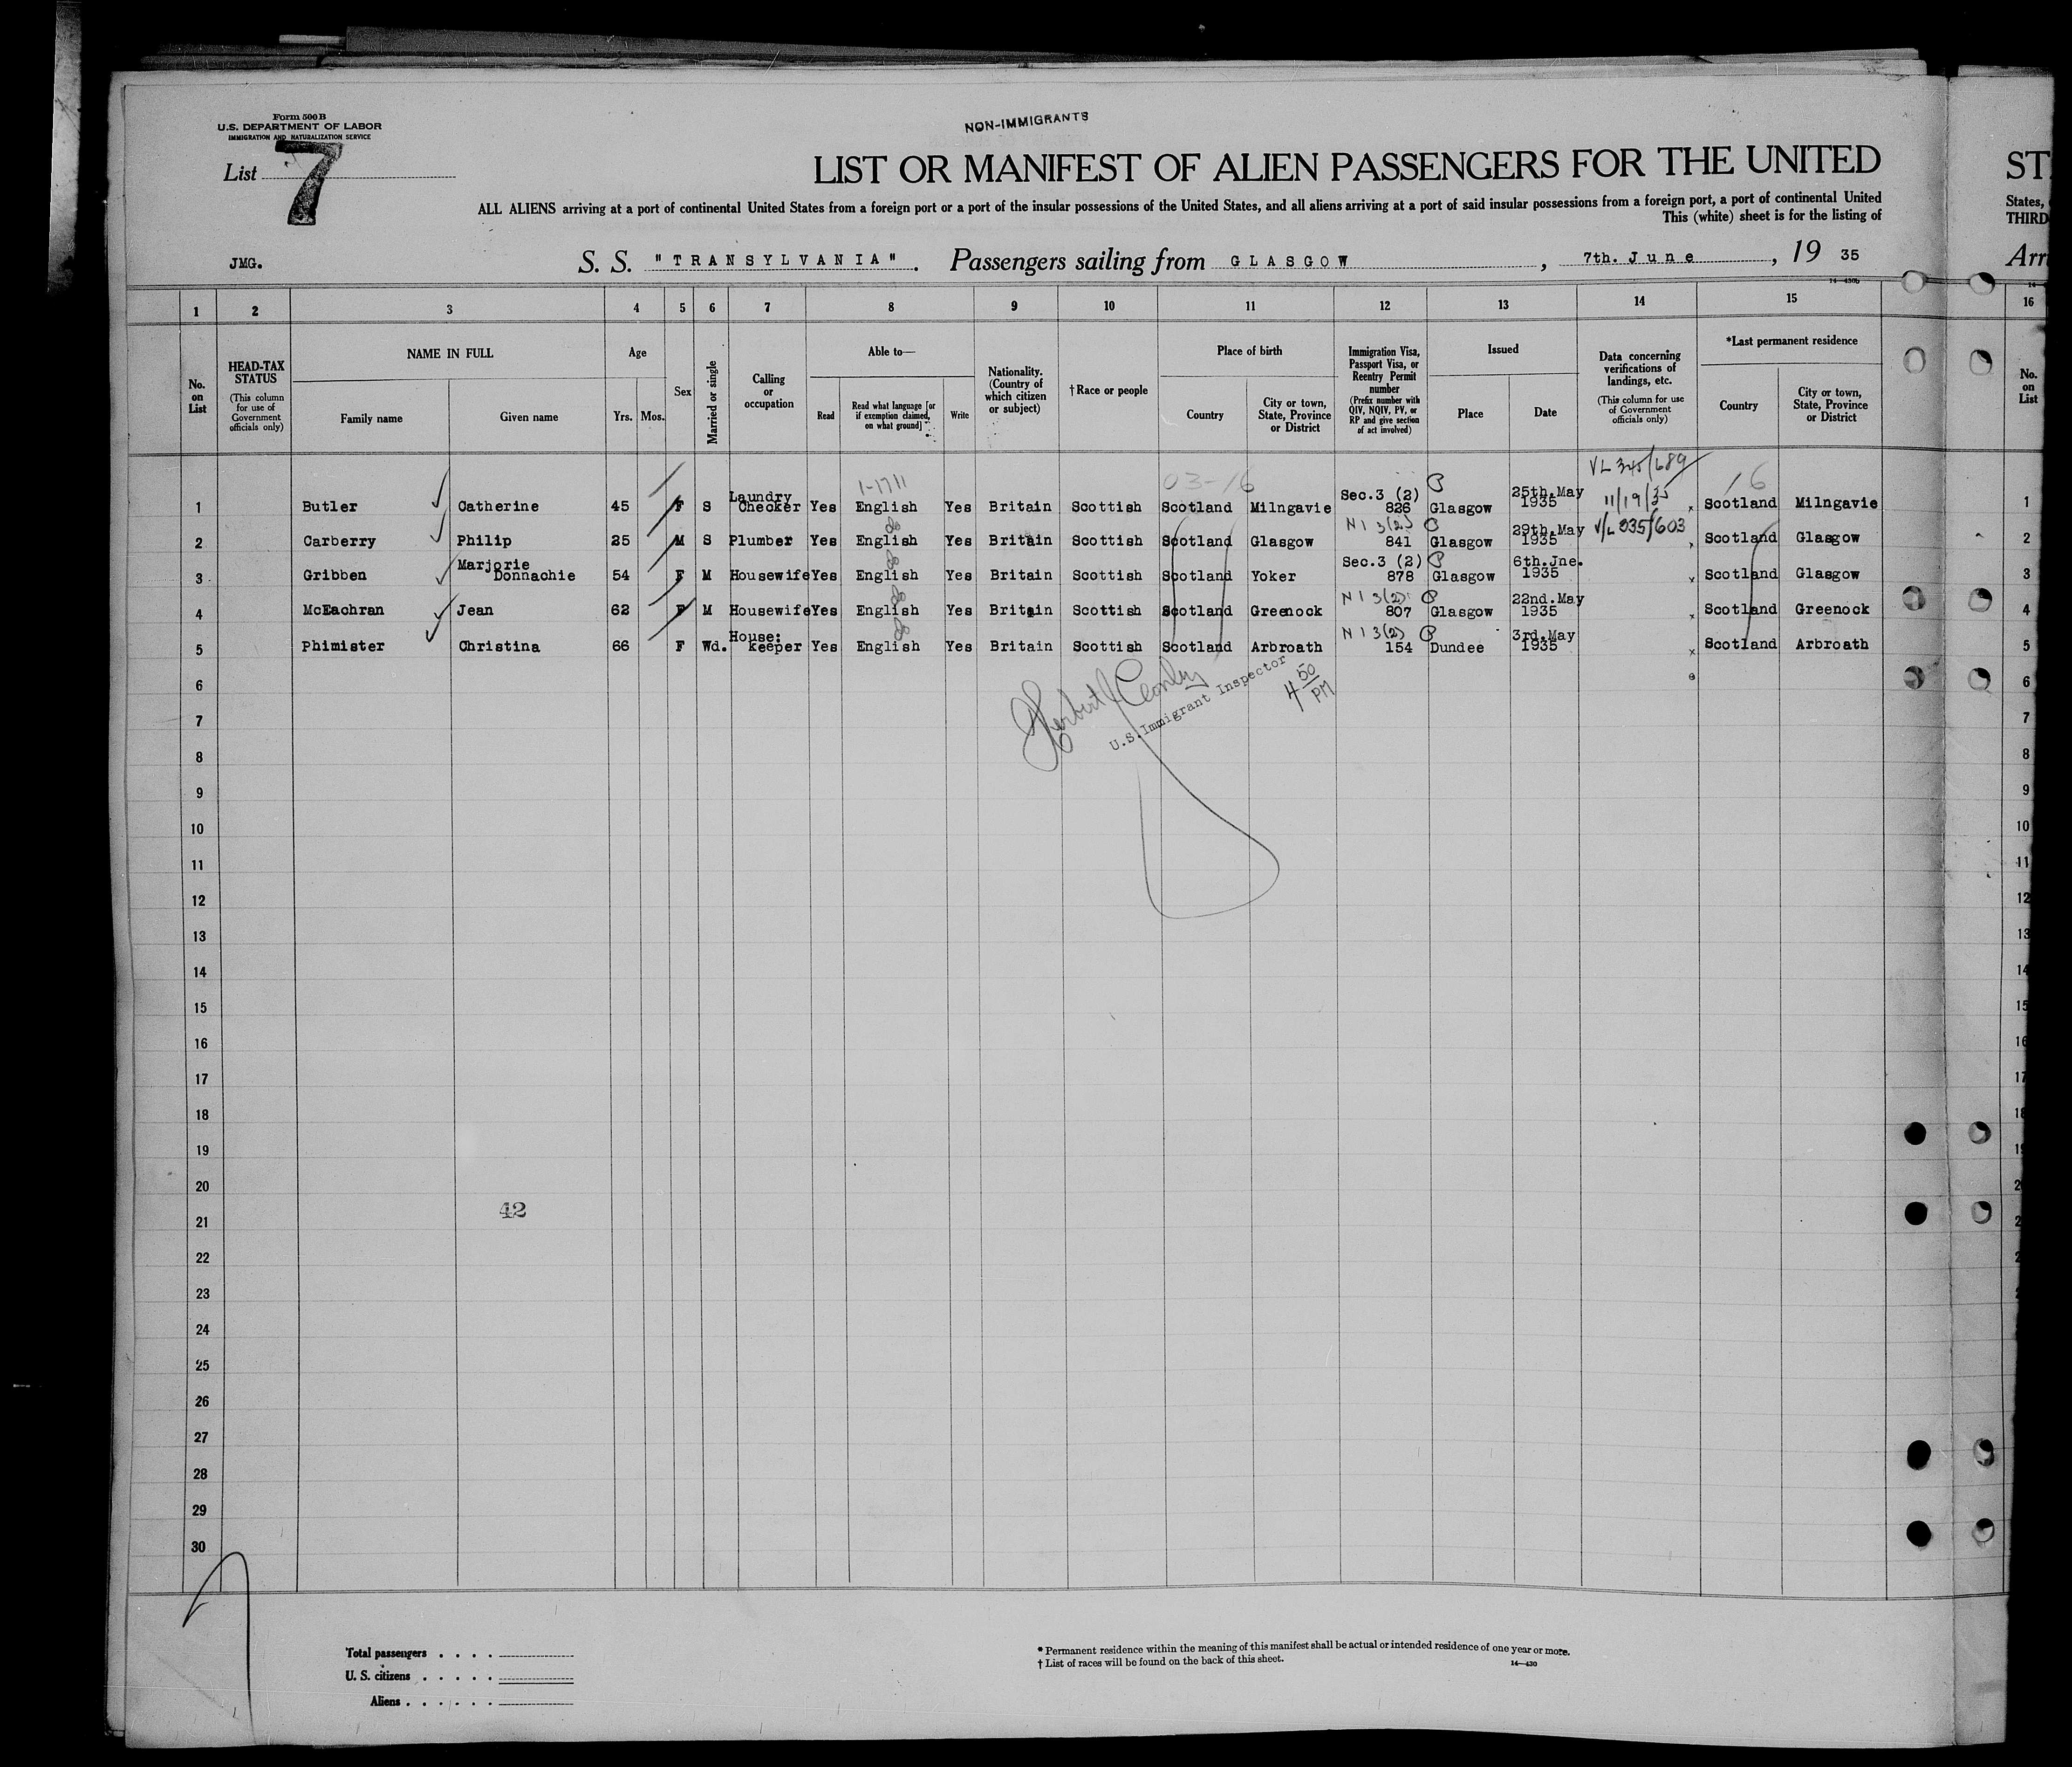 Form 500B
U.S. DEPARTMENT OF LABOR
IMMIGRATION AND NATURALIZATION SERVICE
NON-IMMIGRANTS
List 7
LIST OR MANIFEST OF ALIEN PASSENGERS FOR THE UNITED
ST
ALL ALIENS arriving at a port of continental United States from a foreign port or a port of the insular possessions of the United States, and all aliens arriving at a port of said insular possessions from a foreign port, a port of continental United
States,
This (white) sheet is for the listing of
THIRD
JMG.
S. S. "TRANSYLVANIA". Passengers sailing from GLASGOW, 7th. June, 19 35
Arr
14—430b
1 2 3 4 5 6 7 8 9 10 11 12 13 14 15 16
No. on List
HEAD-TAX STATUS
(This column for use of Government officials only)
NAME IN FULL
Family name
Given name
Age
Yrs. Mos.
Sex
Married or single
Calling or occupation
Able to—
Read
Read what language [or if exemption claimed, on what ground]
Write
Nationality. (Country of which citizen or subject)
†Race or people
Place of birth
Country
City or town, State, Province or District
Immigration Visa, Passport Visa, or Reentry Permit number
(Prefix number with QIV, NQIV, PV, or RP and give section of act involved)
Issued
Place
Date
Data concerning verifications of landings, etc.
(This column for use of Government officials only)
*Last permanent residence
Country
City or town, State, Province or District
No. on List
1-1711
03-16
16
1 Butler Catherine 45 F S Laundry Checker Yes English Yes Britain Scottish Scotland Milngavie Sec.3 (2) 826 Glasgow 25th.May 1935 11/19/35 Scotland Milngavie 1
2 Carberry Philip 25 M S Plumber Yes English Yes Britain Scottish Scotland Glasgow N I 3(2) 841 Glasgow 29th.May 1935 V/L 335/603 Scotland Glasgow 2
3 Gribben Marjorie Donnachie 54 F M Housewife Yes English Yes Britain Scottish Scotland Yoker Sec.3 (2) 878 Glasgow 6th.Jne. 1935 Scotland Glasgow 3
4 McEachran Jean 62 F M Housewife Yes English Yes Britain Scottish Scotland Greenock N I 3(2) 807 Glasgow 22nd.May 1935 Scotland Greenock 4
5 Phimister Christina 66 F Wd. House: keeper Yes English Yes Britain Scottish Scotland Arbroath N I 3(2) 154 Dundee 3rd.May 1935 Scotland Arbroath 5
6 6
U.S. Immigrant Inspector
4 50 PM
7 7
8 8
9 9
10 10
11 11
12 12
13 13
14 14
15 15
16 16
17 17
18 18
19 19
20
42
21
22
23
24
25
26
27
28
29
30
Total passengers
U. S. citizens
Aliens
* Permanent residence within the meaning of this manifest shall be actual or intended residence of one year or more.
† List of races will be found on the back of this sheet.
14—430